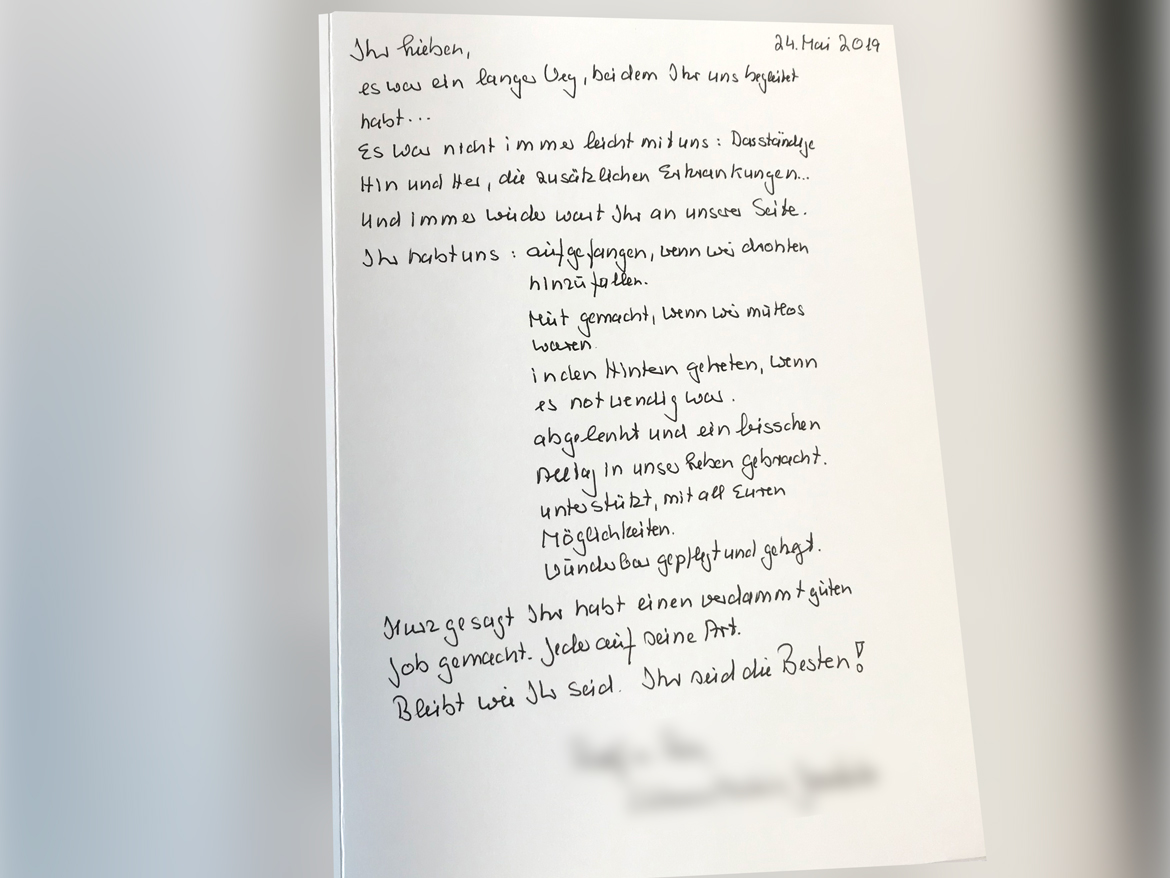 24. Mai 2019
Ihr Lieben,
es war ein langer Weg, bei dem Ihr uns begleitet
habt...
Es war nicht immer leicht mit uns: Das ständige
Hin und Her, die zusätzlichen Erkrankungen...
Und immer wieder wart Ihr an unserer Seite.
Ihr habt uns: aufgefangen, wenn wir drohten
hinzufallen.
Mut gemacht, wenn wir mutlos
waren.
in den Hintern getreten, wenn
es notwendig war.
abgelenkt und ein bisschen
Alltag in unser Leben gebracht.
unterstützt, mit all Euren
Möglichkeiten.
wunderbar gepflegt und gehegt.
Kurz gesagt Ihr habt einen verdammt guten
Job gemacht. Jeder auf seine Art.
Bleibt wie Ihr seid. Ihr seid die Besten!